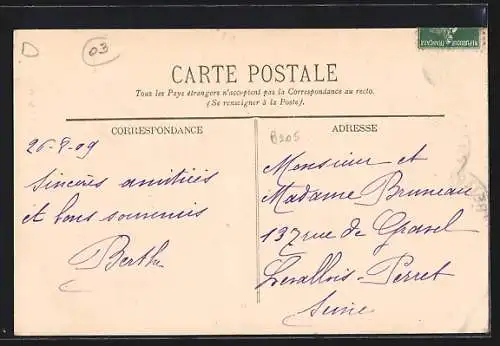 D
03
RÉPUBLIQUE FRANÇAISE
CARTE POSTALE
Tous les Pays étrangers n'acceptent pas la Correspondance au recto.
(Se renseigner à la Poste).
CORRESPONDANCE
26-9-09
Sincères amitiés
et bons souvenirs
Berthe
B205
ADRESSE
Monsieur et
Madame Bruneau
137 rue de Gravel
Levallois-Perret
Seine